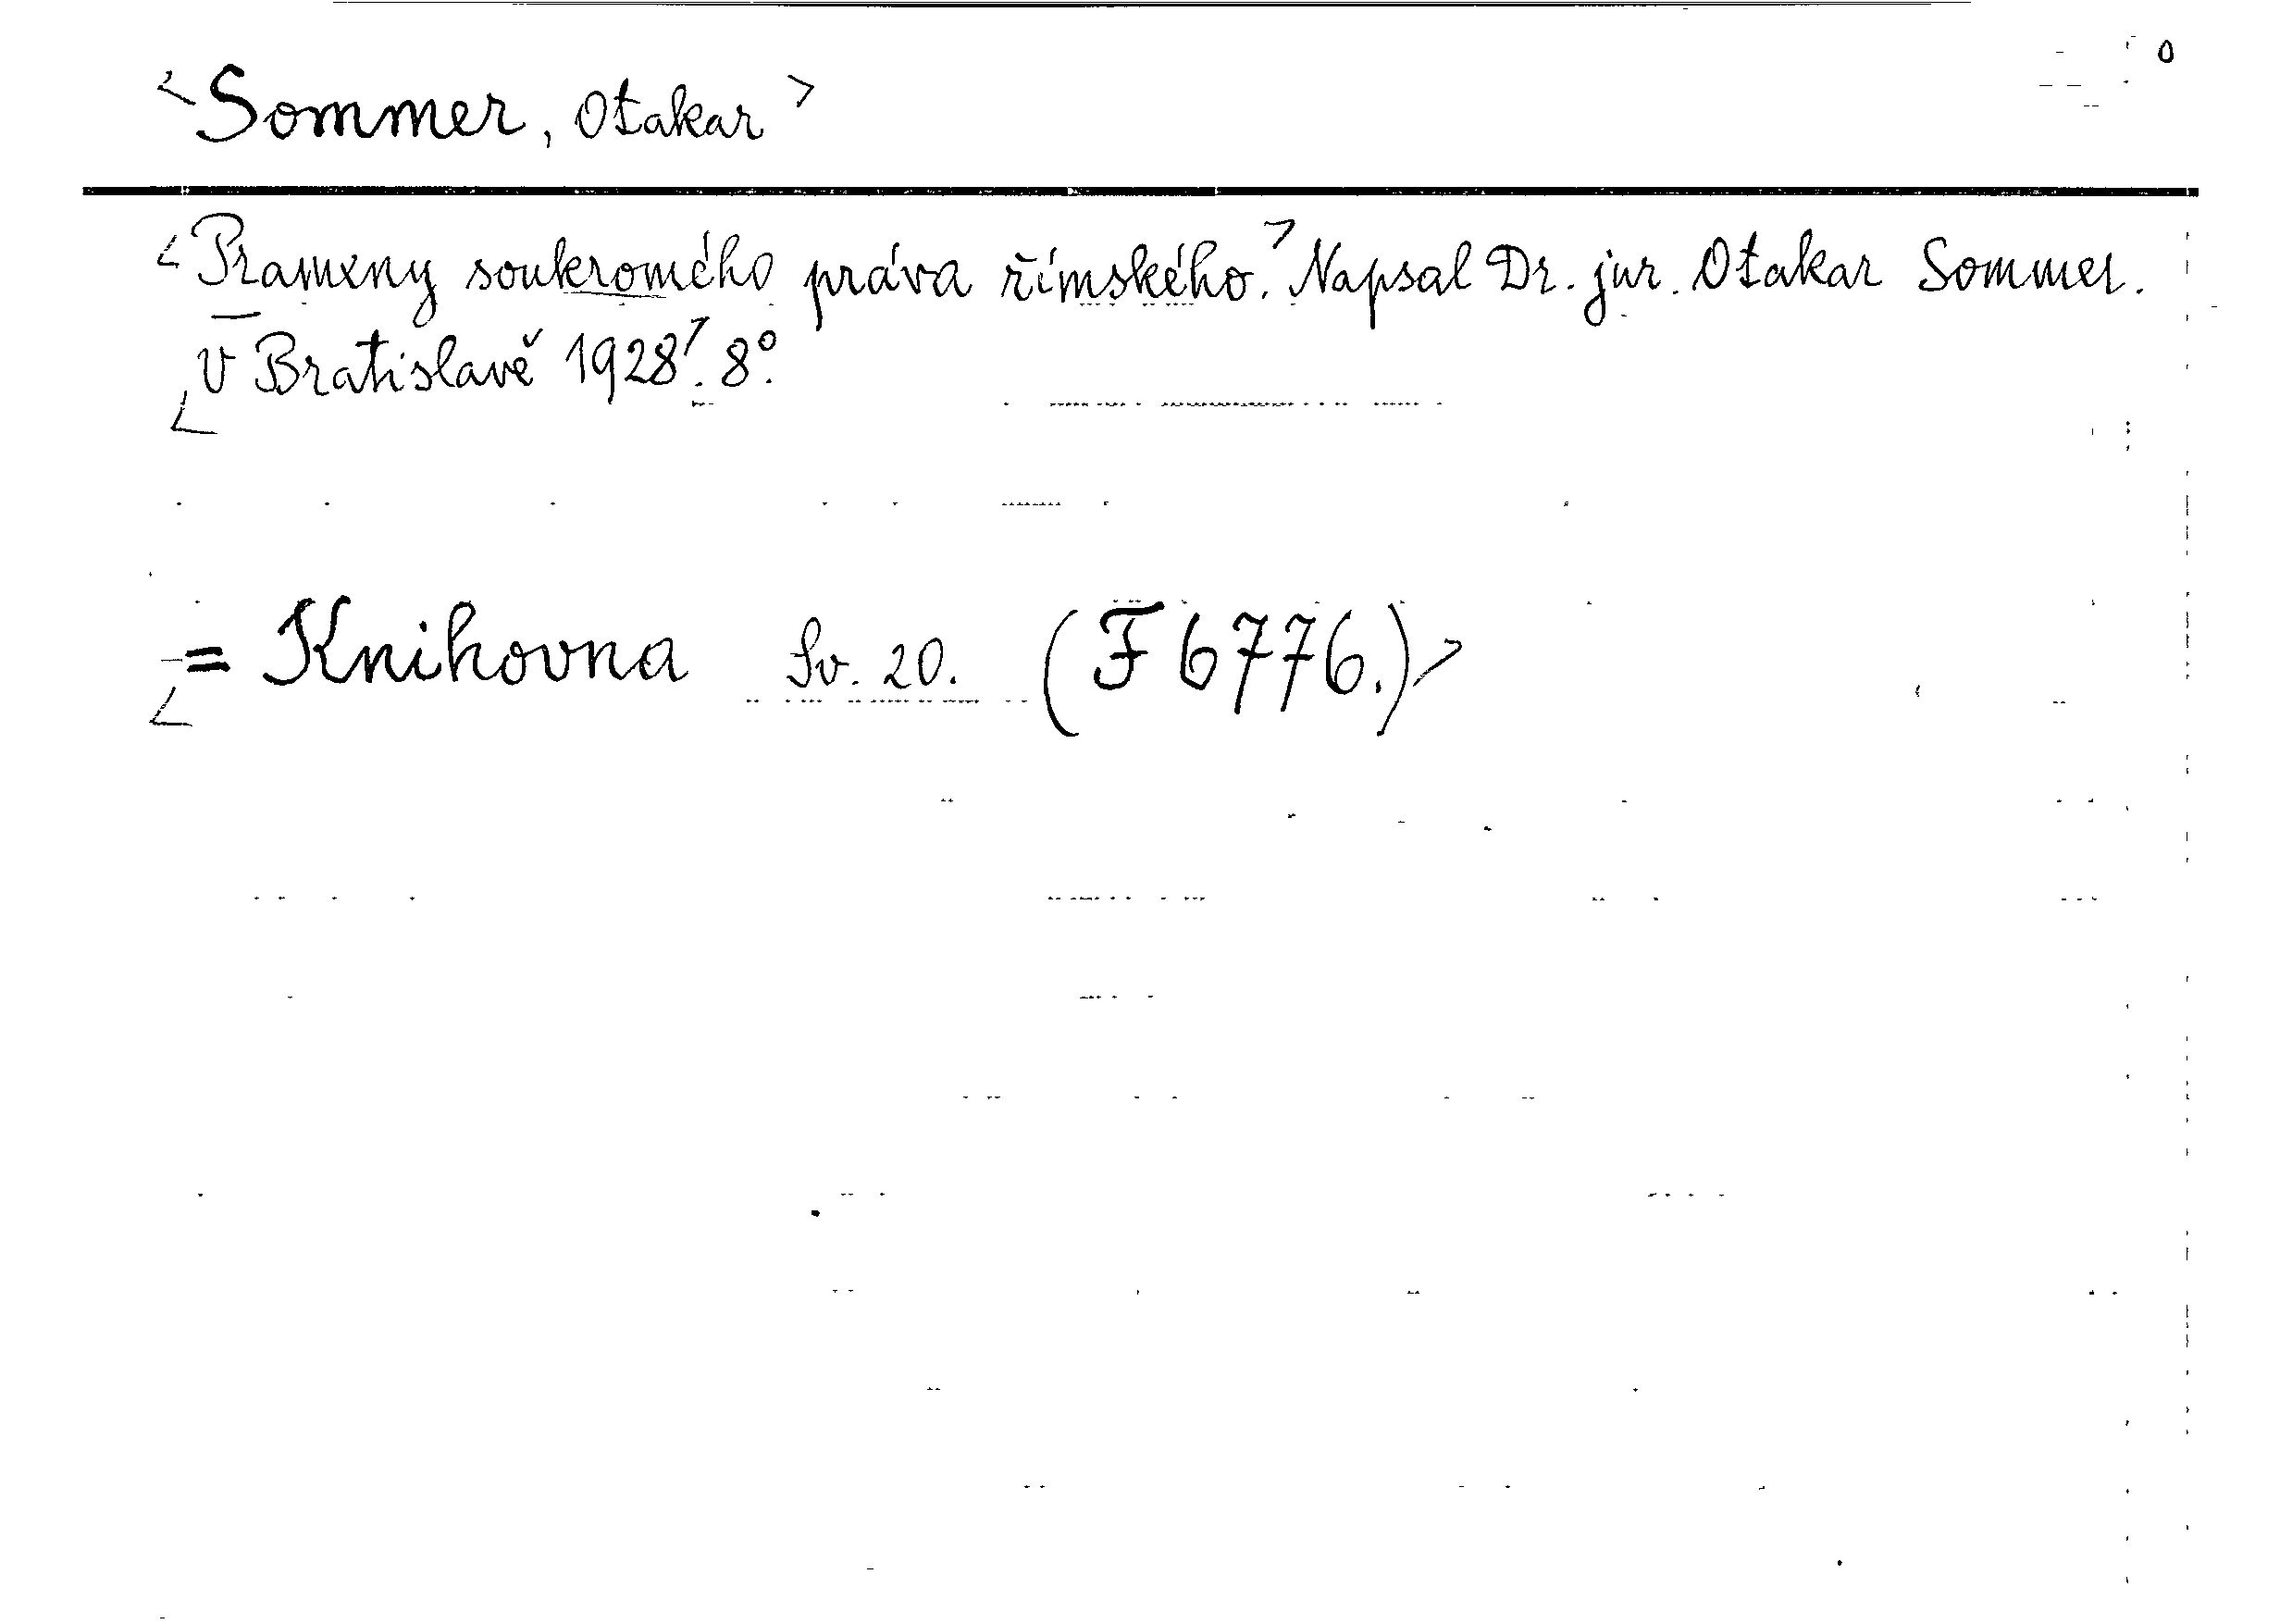 <Sommer, Otakar>
0
<Prameny soukromého práva římského.> Napsal Dr. jur. Otakar Sommer.
<V Bratislavě 1928>. 8°.
<= Knihovna Sv. 20. (F 6776.)>